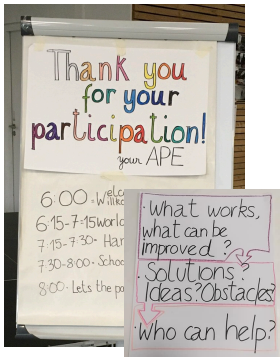 Thank you
for your
participation!
your APE
6:00
6:15-7:15 World
7:15-7:30-
7:30-8:00-
8:00- Lets the
· What works,
what can be
improved?
· Solutions?
Ideas? Obstacles?
· Who can help?